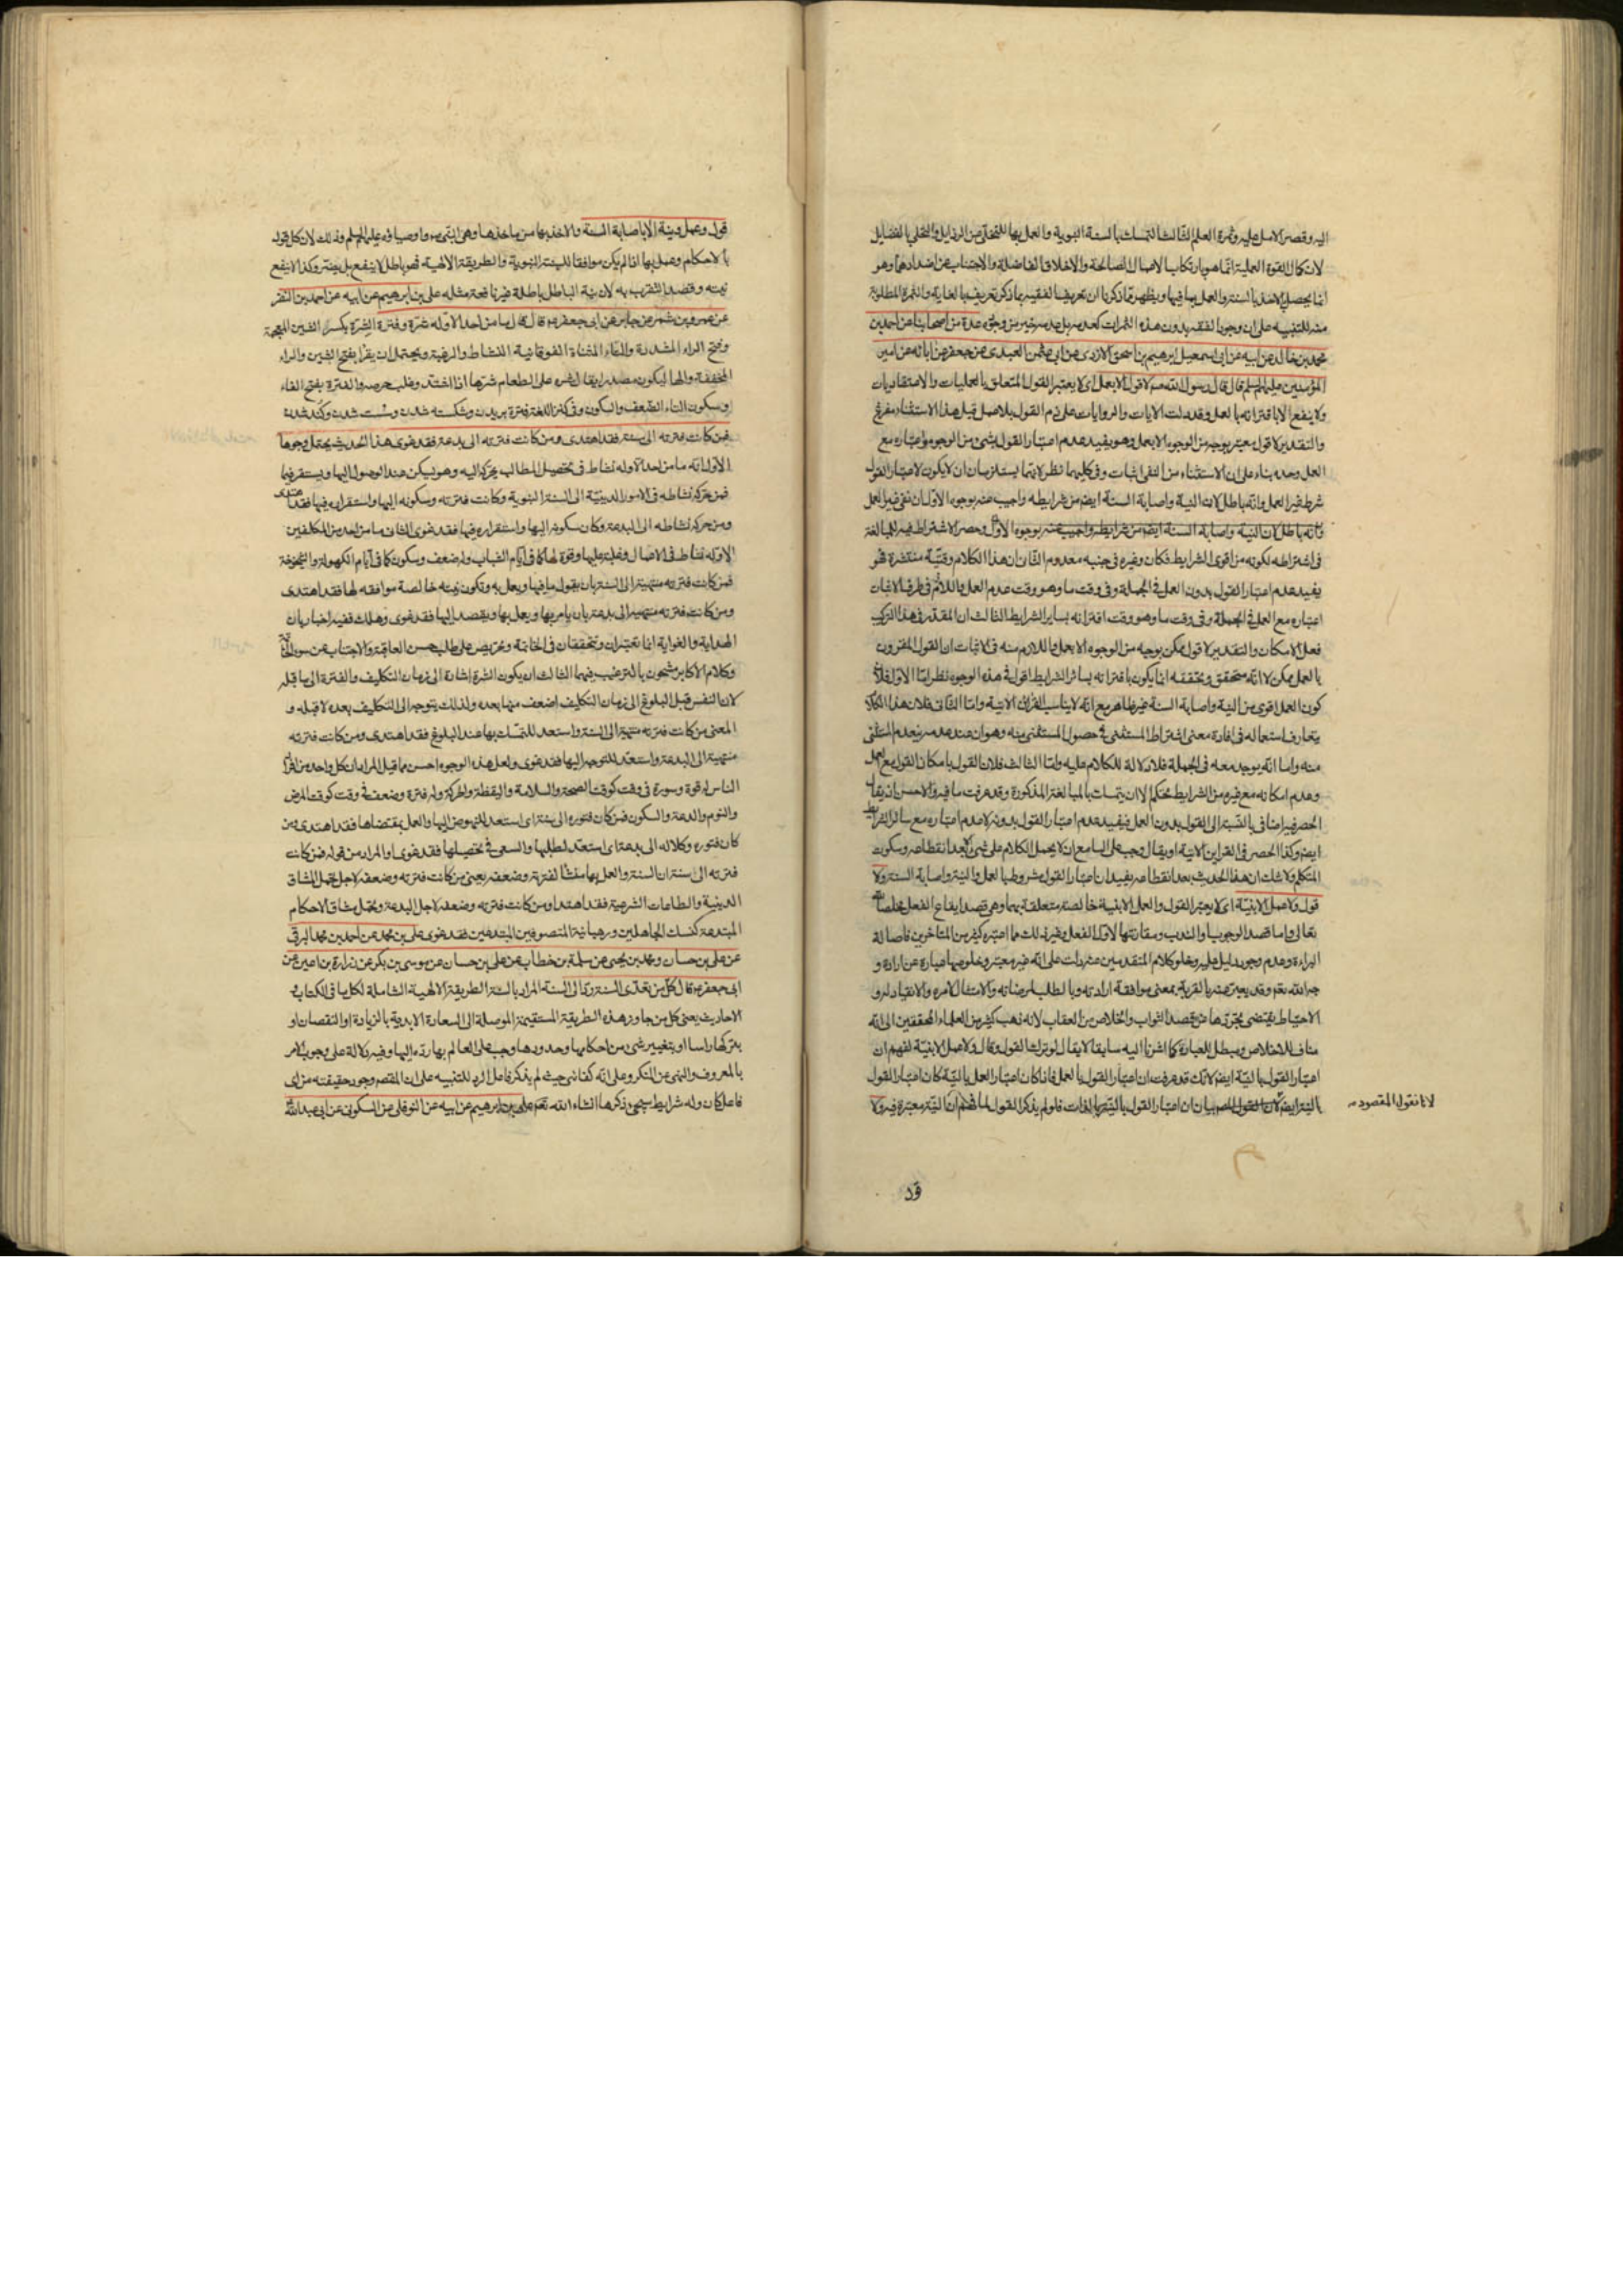 اليه وقصر الامل عليه وثمرة العلم الثالث التمسك بالسنة النبوية والعمل بها للتخلى من الرذايل والتحلى بالفضايل
لان كمال القوة العملية انما هو بارتكاب الاعمال الصالحة والاخلاق الفاضلة والاجتناب عن اضدادها وهو
انما يحصل بالاخذ بالسنة والعمل بما فيها ويظهر مما ذكرنا ان تعريف الفقيه بما ذكر تعريف بالغاية والثمرة المطلوبة
منه للتنبيه على ان وجود الفقه بدون هذه الثمرات كعدمه بل عدمه خير من وجوده عدة من اصحابنا عن احمد بن
محمد بن خالد عن ابيه عن ابى اسمعيل ابرهيم بن اسحق الازدى عن ابى عثمن العبدى عن جعفر عن ابائه عن امير
المؤمنين عليهم السلم قال قال رسول الله صم لا قول الا بعمل اى لا يعتبر القول المتعلق بالعمليات والاعتقاديات
ولا ينفع الا باقترانه بالعمل وقد دلت الايات والروايات على ذم القول بلا عمل قيل هذا الاستثناء مفرغ
والتقدير لا قول معتبر بوجه من الوجوه الا بعمل وهو يفيد عدم اعتبار القول بشئ من الوجوه واعتباره مع
العمل وحده بناء على ان الاستثناء من النفى اثبات وفى كليهما نظر لانهما يستلزمان ان لا يكون لاعتبار القول
شرط غير العمل وانه باطل لان النية واصابة السنة ايضا من شرايطه واجيب عنه بوجوه الاول ان نفى غير العمل
وانه باطل لان النية واصابة السنة ايضا من شرايطه واجيب عنه بوجوه الاول وحصر الاشتراط فيه للمبالغة
فى اشتراطه لكونه من اقوى الشرايط فكان وغيره فى جنبه معدوم الثانى ان هذا الكلام وقتية منتشرة فهو
يفيد عدم اعتبار القول بدون العمل فى الجملة وفى وقت ما وهو وقت عدم العمل واللازم فى طرف الاثبات
اعتباره مع العمل فى الجملة وفى وقت ما وهو وقت اقترانه بساير الشرايط الثالث ان المقدر فى هذا التركيب
فعل الامكان والتقدير لا قول يمكن بوجه من الوجوه الا بعمل واللازم منه فى الاثبات ان القول المقرون
بالعمل يمكن لا انه متحقق وتحققه انما يكون باقترانه بسائر الشرايط اقول فى هذه الوجوه نظر اما الاول فلان
كون العمل اقوى من النية واصابة السنة غير ظاهر مع انه لا يناسب القراين الاتية واما الثانى فلان هذا الكلام
يتعارف استعماله فى افادة معنى اشتراط المستثنى فى حصول المستثنى منه وهو ان عند عدمه ينعدم المستثنى
منه واما انه يوجد معه فى الجملة فلا دلالة للكلام عليه واما الثالث فلان القول بامكان القول مع العمل
وعدم امكانه مع غيره من الشرايط تحكم الا ان يتمسك بالمبالغة المذكورة وقد عرفت ما فيه والاحسن ان يقال
الحصر فيه اضافى بالنسبة الى القول بدون العمل فيفيد عدم اعتبار القول بدونه لا عدم اعتباره مع سائر الشرايط
ايضا وكذا الحصر فى القراين الاتية او يقال وجب على السامع ان لا يحمل الكلام على شئ الا بعد انقطاعه وسكوت
المتكلم ولا شك ان هذا الحديث بعد انقطاعه يفيد ان اعتبار القول مشروط بالعمل والنية واصابة السنة ولا
قول ولا عمل الا بنية اى لا يعتبر القول والعمل الا بنية خالصة متعلقة بهما وهى قصد ايقاع الفعل مخلصا لله
تعالى واما قصد الوجوب والندب ومقارنتها لاول الفعل وغير ذلك مما اعتبره كثير من المتاخرين فاصالة
البراءة وعدم وجود دليل عليه وخلو كلام المتقدمين عنه دلت على انه غير معتبر وخلوصها عبارة عن ارادة و
جه الله تعم وقد يعبر عنه بالقربة بمعنى موافقة ارادته وبالطلب لمرضاته والامتثال لامره والانقياد له و
الاحتياط يقتضى تجردها عن قصد الثواب والخلاص من العقاب لانه ذهب كثير من العلماء المحققين الى انه
مناف للاخلاص ومبطل للعبادة كما اشرنا اليه سابقا لا يقال لو ترك القول وقال ولا عمل الا بنية لفهم ان
اعتبار القول بالنية ايضا لانك قد عرفت ان اعتبار القول بالعمل فاذا كان اعتبار العمل بالنية كان اعتبار القول
بالنية ايضا بيان ان اعتبار القول بالنية بالذات فلو لم يذكر القول لما فهم ان النية معتبرة فيه ولا
لانا نقول المقصود
قول وعمل ونية الا باصابة السنة والاخذ بها من ماخذها وهى النبى ص واوصياؤه عليهم السلم وذلك لان كل قول
بالاحكام وعمل بها اذا لم يكن موافقا للسنة النبوية والطريقة الالهية فهو باطل لا ينفع بل يضر وكذا لا ينفع
نيته وقصد التقرب به لان نية الباطل باطلة غير نافعة مثله على بن ابرهيم عن ابيه عن احمد بن النضر
عن عمرو بن شمر عن جابر عن ابى جعفر ع قال قال ما من احد الا وله شرة وفترة الشرة بكسر الشين المعجمة
وفتح الراء المشددة والتاء المثناة الفوقانية النشاط والرغبة ويحتمل ان يقرأ بفتح الشين والراء
المخففة والها ليكون مصدرا يقال شره على الطعام شرها اذا اشتد وغلب حرصه والفترة بفتح الفاء
وسكون التاء الضعف والسكون وفى كنز اللغة فترة بريدن وشكسته شدن وسست شدن وكند شدن
فمن كانت فترته الى سنة فقد اهتدى ومن كانت فترته الى بدعة فقد غوى هذا الحديث يحتمل وجوها
الاول انه ما من احد الا وله نشاط فى تحصيل المطالب يحركه اليه وهو يسكن عند الوصول اليها ويستقر فيها
فمن حركه نشاطه فى الامور الدينية الى السنة النبوية وكانت فترته وسكونه اليها واستقراره فيها فقد اهتدى
ومن حركه نشاطه الى البدعة وكان سكونه اليها واستقراره فيها فقد غوى الثانى ما من احد من المكلفين
الا وله نشاط فى الاعمال وغلبة عليها وقوة لها كما فى ايام الشباب وله ضعف وسكون كما فى ايام الكهولة والشيخوخة
فمن كانت فترته منتهية الى السنة بان يقول ما فيها ويعمل به وتكون نيته خالصة موافقة لها فقد اهتدى
ومن كانت فترته منتهية الى بدعة بان يامر بها ويعمل بها ويقصد اليها فقد غوى وهلك ففيه اخبار بان
الهداية والغواية انما تعتبران وتتحققان فى الخاتمة وتحريص على طلب حسن العاقبة والاجتناب عن سوء الخاتمة
وكلام الاكابر مشحون بالترغيب فيهما الثالث ان يكون الشرة اشارة الى زمان التكليف والفترة الى ما قبله
لان النفس قبل البلوغ الى زمان التكليف اضعف منها بعده ولذلك يتوجه الى التكليف بعده لا قبله و
المعنى من كانت فترته منتهية الى السنة واستعد للتمسك بها عند البلوغ فقد اهتدى ومن كانت فترته
منتهية الى البدعة واستعد للتوجه اليها فقد غوى ولعل هذه الوجوه احسن مما قيل المراد ان كل واحد من افراد
الناس له قوة وسورة فى وقت كوقت الصحة والسلامة واليقظة والحركة وله فترة وضعف فى وقت كوقت المرض
والنوم والدعة والسكون فمن كان فتوره الى سنة اى استعد للنهوض اليها والعمل بمقتضاها فقد اهتدى ومن
كان فتوره وكلاله الى بدعة اى استعد لطلبها والسعى فى تحصيلها فقد غوى او المراد من قوله فمن كانت
فترته الى سنة ان السنة والعمل بها منشأ لفترته وضعفه يعنى من كانت فترته وضعفه لاجل تحمل المشاق
الدينية والطاعات الشرعية فقد اهتدى ومن كانت فترته وضعفه لاجل البدعة وتحمل مشاق الاحكام
المبتدعة كنسك الجاهلين ورهبانية المتصوفين المبتدعين فقد غوى على بن محمد عن احمد بن محمد البرقى
عن على بن حسان ومحمد بن يحيى عن سلمة بن خطاب عن على بن حسان عن موسى بن بكر عن زرارة بن اعين عن
ابى جعفر ع قال كل من تعدى السنة رد الى السنة المراد بالسنة الطريقة الالهية الشاملة لكل ما فى الكتاب و
الاحاديث يعنى كل من جاوز هذه الطريقة المستقيمة الموصلة الى السعادة الابدية بالزيادة او النقصان او
بتركها راسا او بتغيير شئ من احكامها وحدودها وجب على العالم بها رده اليها وفيه دلالة على وجوب الامر
بالمعروف والنهى عن المنكر وعلى انه كفائى حيث لم يذكر فاعل الرد للتنبيه على ان المقصود وجود حقيقته من اى
فاعل كان وله شرايط سيجئ ذكرها انشاء الله تعم على بن ابرهيم عن ابيه عن النوفلى عن السكونى عن ابى عبد الله